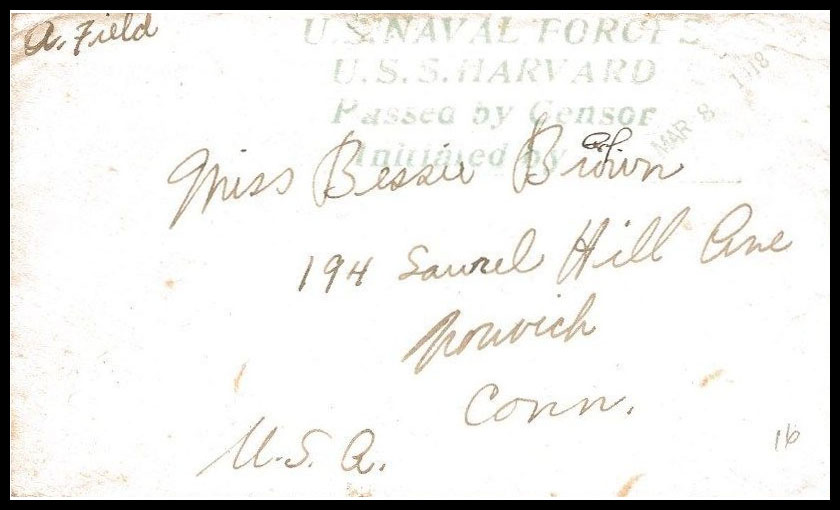 A. Field
U.S. NAVAL FORCES
U.S.S. HARVARD
Passed by Censor
Initiated by
MAR 8 1918
Miss Bessie Brown
194 Laurel Hill Ave
Norwich
Conn.
U.S.A.
16